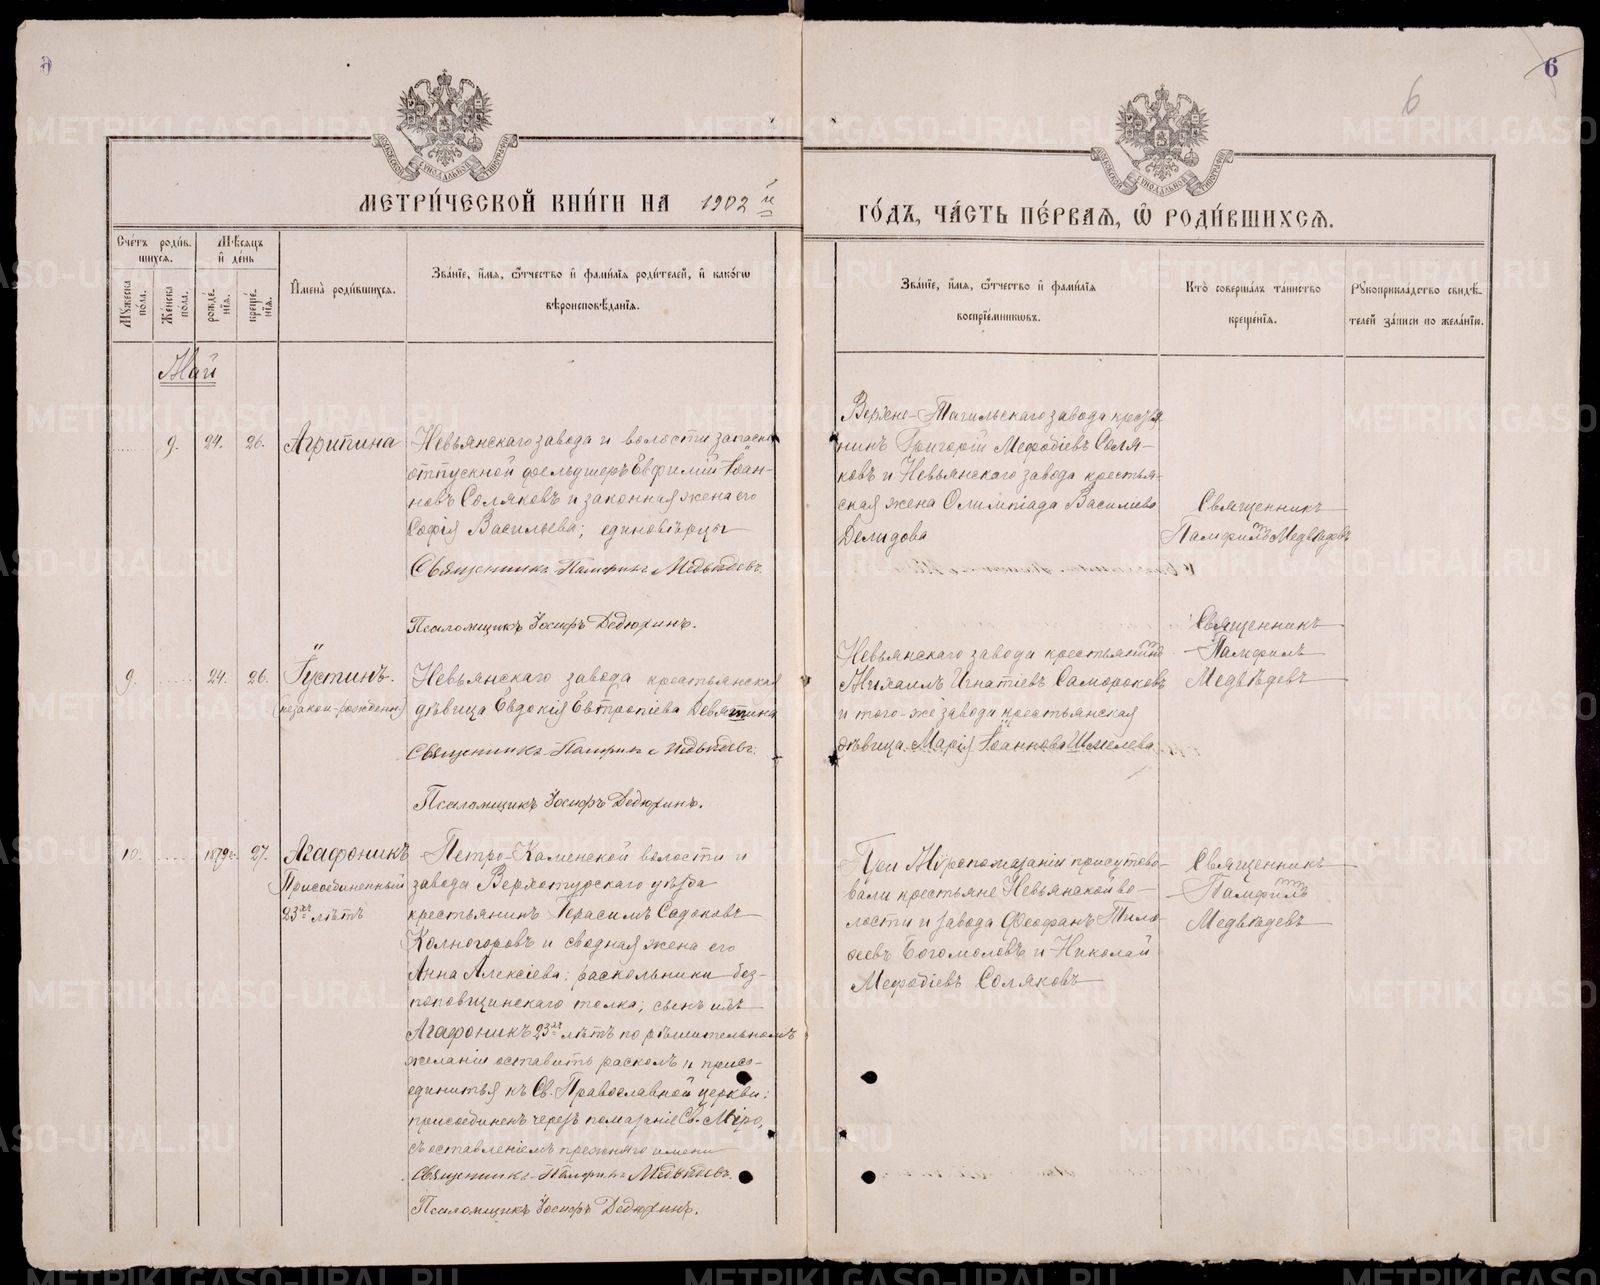 6
6
МЕТРИ́ЧЕСКОЙ КНИ́ГИ НА 1902 й
ГО́ДЪ, ЧА́СТЬ ПЕ́РВАЯ, Ѿ РОДИ́ВШИХСЯ.
Сче́тъ роди́вшихся.
Му́жеска по́ла.
Же́нска по́ла.
Мѣ́сяцъ и́ де́нь
рожде́нїя.
креще́нїя.
И҆мена̀ роди́вшихся.
Зва́нїе, и҆́мя, ѻ҆́тчество и҆ фами́лїя роди́телей, и҆ како́гѡ
вѣроисповѣ́данїя.
Зва́нїе, и҆́мя, ѻ҆́тчество и҆ фами́лїя
воспрїе́мникѡвъ.
Кто̀ соверша́лъ та́инство
креще́нїя.
Рꙋкоприкла́дство свидѣ́телей за́писи по жела́нїю.
Май
9. 24. 26. Агрипина
Невьянскаго завода и волости запасно
отпускной фельдшеръ Евфимій Іоан-
новъ Соляковъ и законная жена его
Софія Васильева; единовѣрцы
Священникъ Памфилъ Медвѣдевъ.
Псаломщикъ Іосифъ Дедюхинъ.
Верхно-Тагильскаго завода кресть
нинъ Григорій Мефодіевъ Соля-
ковъ и Невьянскаго завода крестья-
ская жена Олимпіада Васильева
Демидова
Священникъ
Памфилъ Медвѣдевъ
9. 24. 26. Іустинъ.
(незакон-рожденн)
Невьянскаго завода крестьянская
дѣвица Евдокія Евтропіева Девятина
Священникъ Памфилъ Медвѣдевъ.
Псаломщикъ Іосифъ Дедюхинъ.
Невьянскаго завода крестьянинъ
Михаилъ Игнатіевъ Самороковъ
и того-же завода крестьянская
дѣвица Марія Іоаннова Шмелева
Священникъ
Памфилъ
Медвѣдевъ
10. 1879г. 27. Агафоникъ
Присоединенный
23хъ лѣтъ
Петро-Каменской волости и
завода Верхотурскаго уѣзда
крестьянинъ Герасимъ Садоковъ
Колногоровъ и сводная жена его
Анна Алексіева; раскольники без-
поповщинскаго толка; сынъ ихъ
Агафоникъ 23хъ лѣтъ по рѣшительномъ
желаніи оставить расколъ и присо-
единиться къ Св. Православной церкви:
присоединенъ чрезъ помазаніе Св. Мѵро,
съ оставленіемъ прежняго имени
Священникъ Памфилъ Медвѣдевъ.
Псаломщикъ Іосифъ Дедюхинъ.
При Мѵропомазаніи присутство-
вали крестьяне Невьянской во-
лости и завода Феофанъ Тимо-
феевъ Богомоловъ и Николай
Мефодіевъ Соляковъ
Священникъ
Памфилъ
Медвѣдевъ